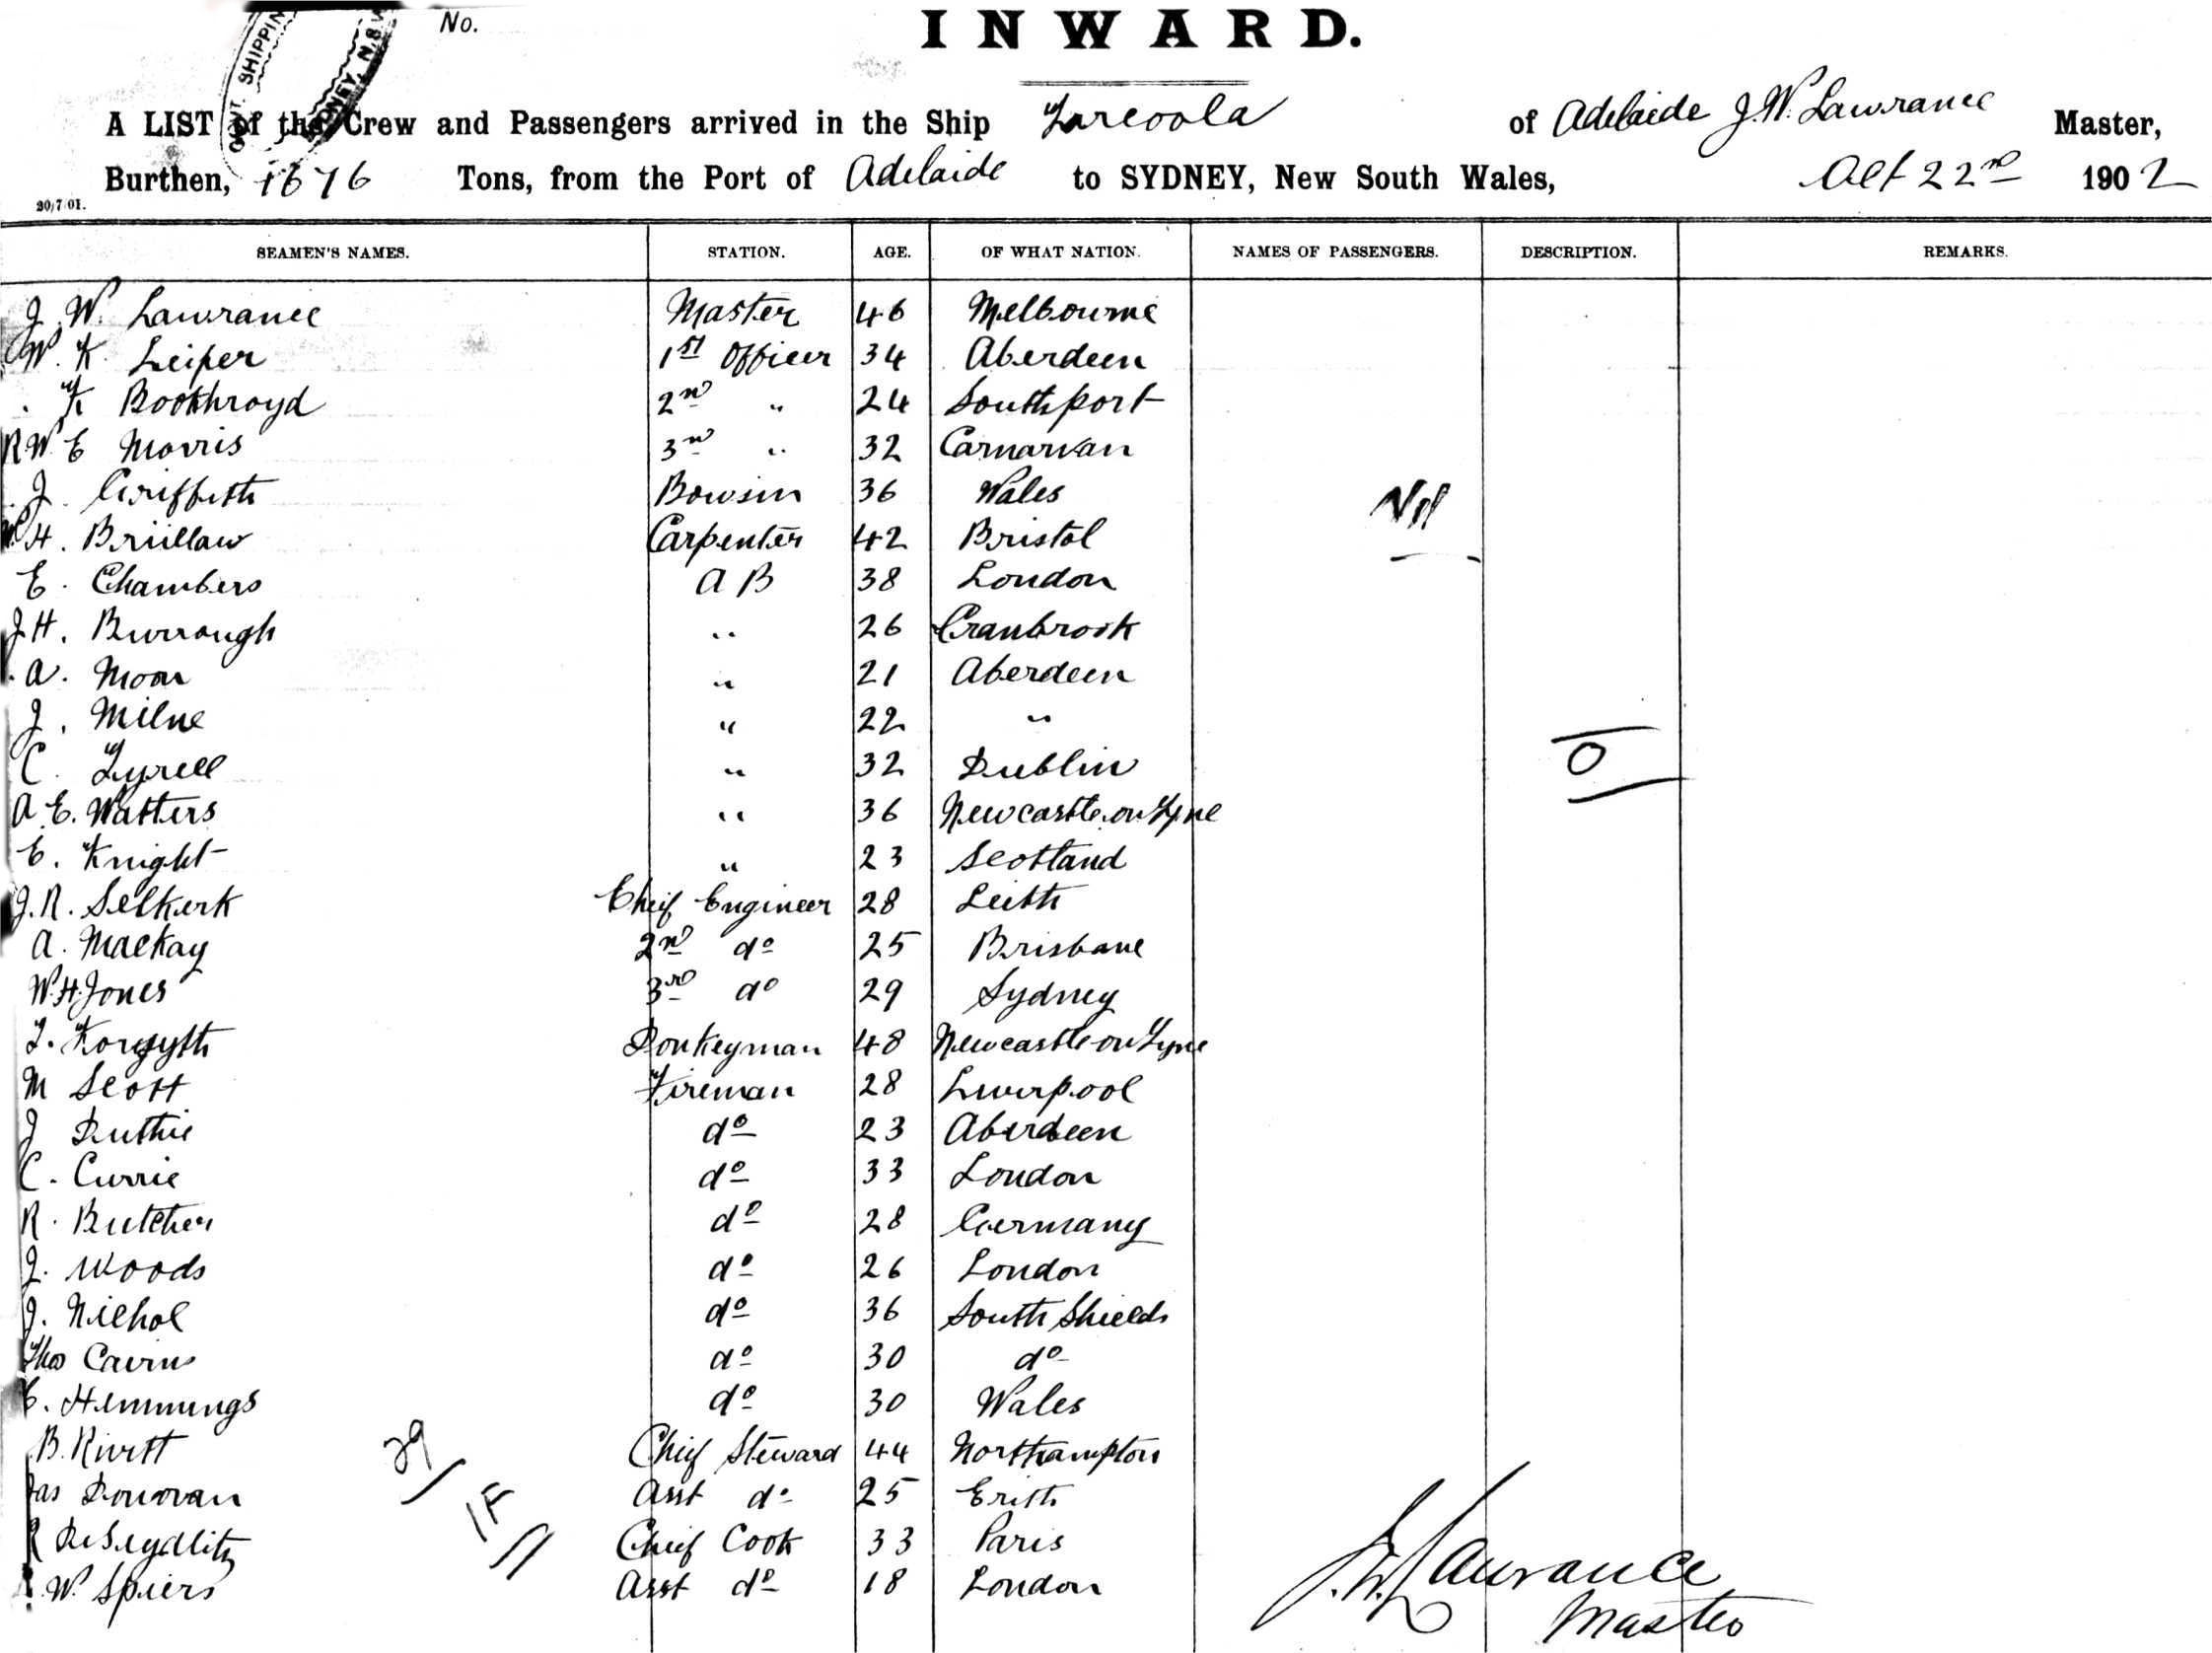 No.
INWARD.
A LIST of the Crew and Passengers arrived in the Ship Tarcoola of Adelaide J.W. Lawrance Master,
Burthen, 1676 Tons, from the Port of Adelaide to SYDNEY, New South Wales, Oct 22nd 1902
20/7/01.
SEAMEN'S NAMES. STATION. AGE. OF WHAT NATION. NAMES OF PASSENGERS. DESCRIPTION. REMARKS.
J. W. Lawrance Master 46 Melbourne
W. F. Leiper 1st Officer 34 Aberdeen
F Boothroyd 2nd " 24 Southport
R W E Morris 3rd " 32 Carnarvan
J. Griffith Bowsin 36 Wales Nil
H. Carpenter 42 Bristol
E. Chambers A B 38 London
J H. Burrough " 26 Cranbrook
A. Moon " 21 Aberdeen
J. Milne " 22 "
C. Tyrell " 32 Dublin O
A. E. Watters " 36 Newcastle on Tyne
E. Knight " 23 Scotland
J. R. Selkerk Cheif Engineer 28 Leith
A. Mackay 2nd do 25 Brisbane
W. H. Jones 3rd do 29 Sydney
T. Forsyth Donkeyman 48 Newcastle-on Tyne
M Scott Fireman 28 Liverpool
J Duthie do 23 Aberdeen
C. Currie do 33 London
R. Butcher do 28 Germany
J. Woods do 26 London
J. Nichol do 36 South Shields
Thos Cairns do 30 do
E. Hemmings do 30 Wales
B. Rivett Chief Steward 44 Northampton
Jas Donovan Asst do 25 Erith
R DeSeydlitz Chief Cook 33 Paris
W. Spiers Asst do 18 London
29/
J.W. Lawrance
Master